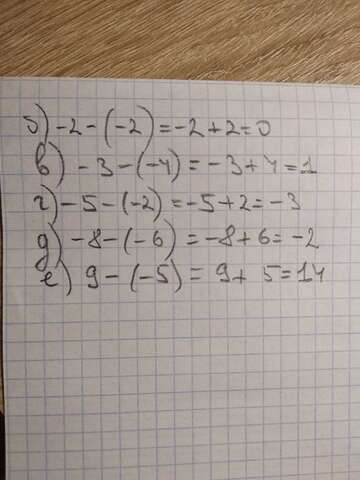 б) -2-(-2)=-2+2=0
в) -3-(-4)=-3+4=1
г) -5-(-2)=-5+2=-3
д) -8-(-6)=-8+6=-2
е) 9-(-5)=9+5=14